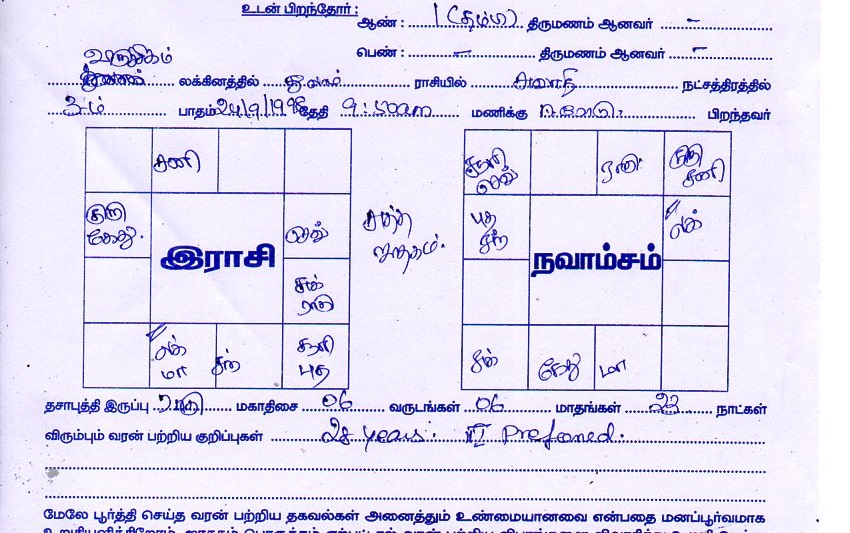 உடன் பிறந்தோர் :
ஆண் : 1 (தம்பி) திருமணம் ஆனவர் -
பெண் : - திருமணம் ஆனவர் -
லக்கினத்தில் துலாம் ராசியில் சுவாதி நட்சத்திரத்தில்
3-ம் பாதம் 24/9/1998 தேதி 9:50am மணிக்கு பிறந்தவர்
சனி
குரு
கேது
செவ்
சுக்
ராகு
லக்
மா
சந்
சூரி
புத
இராசி
சுத்த
ஜாதகம்.
சூரி
செவ்
ராகு
குரு
சனி
புத
சந்
லக்
சுக்
கேது
மா
நவாம்சம்
தசாபுத்தி இருப்பு ராகு மகாதிசை 06 வருடங்கள் 06 மாதங்கள் 23 நாட்கள்
விரும்பும் வரன் பற்றிய குறிப்புகள் 28 years. IT Preferred.
மேலே பூர்த்தி செய்த வரன் பற்றிய தகவல்கள் அனைத்தும் உண்மையானவை என்பதை மனப்பூர்வமாக